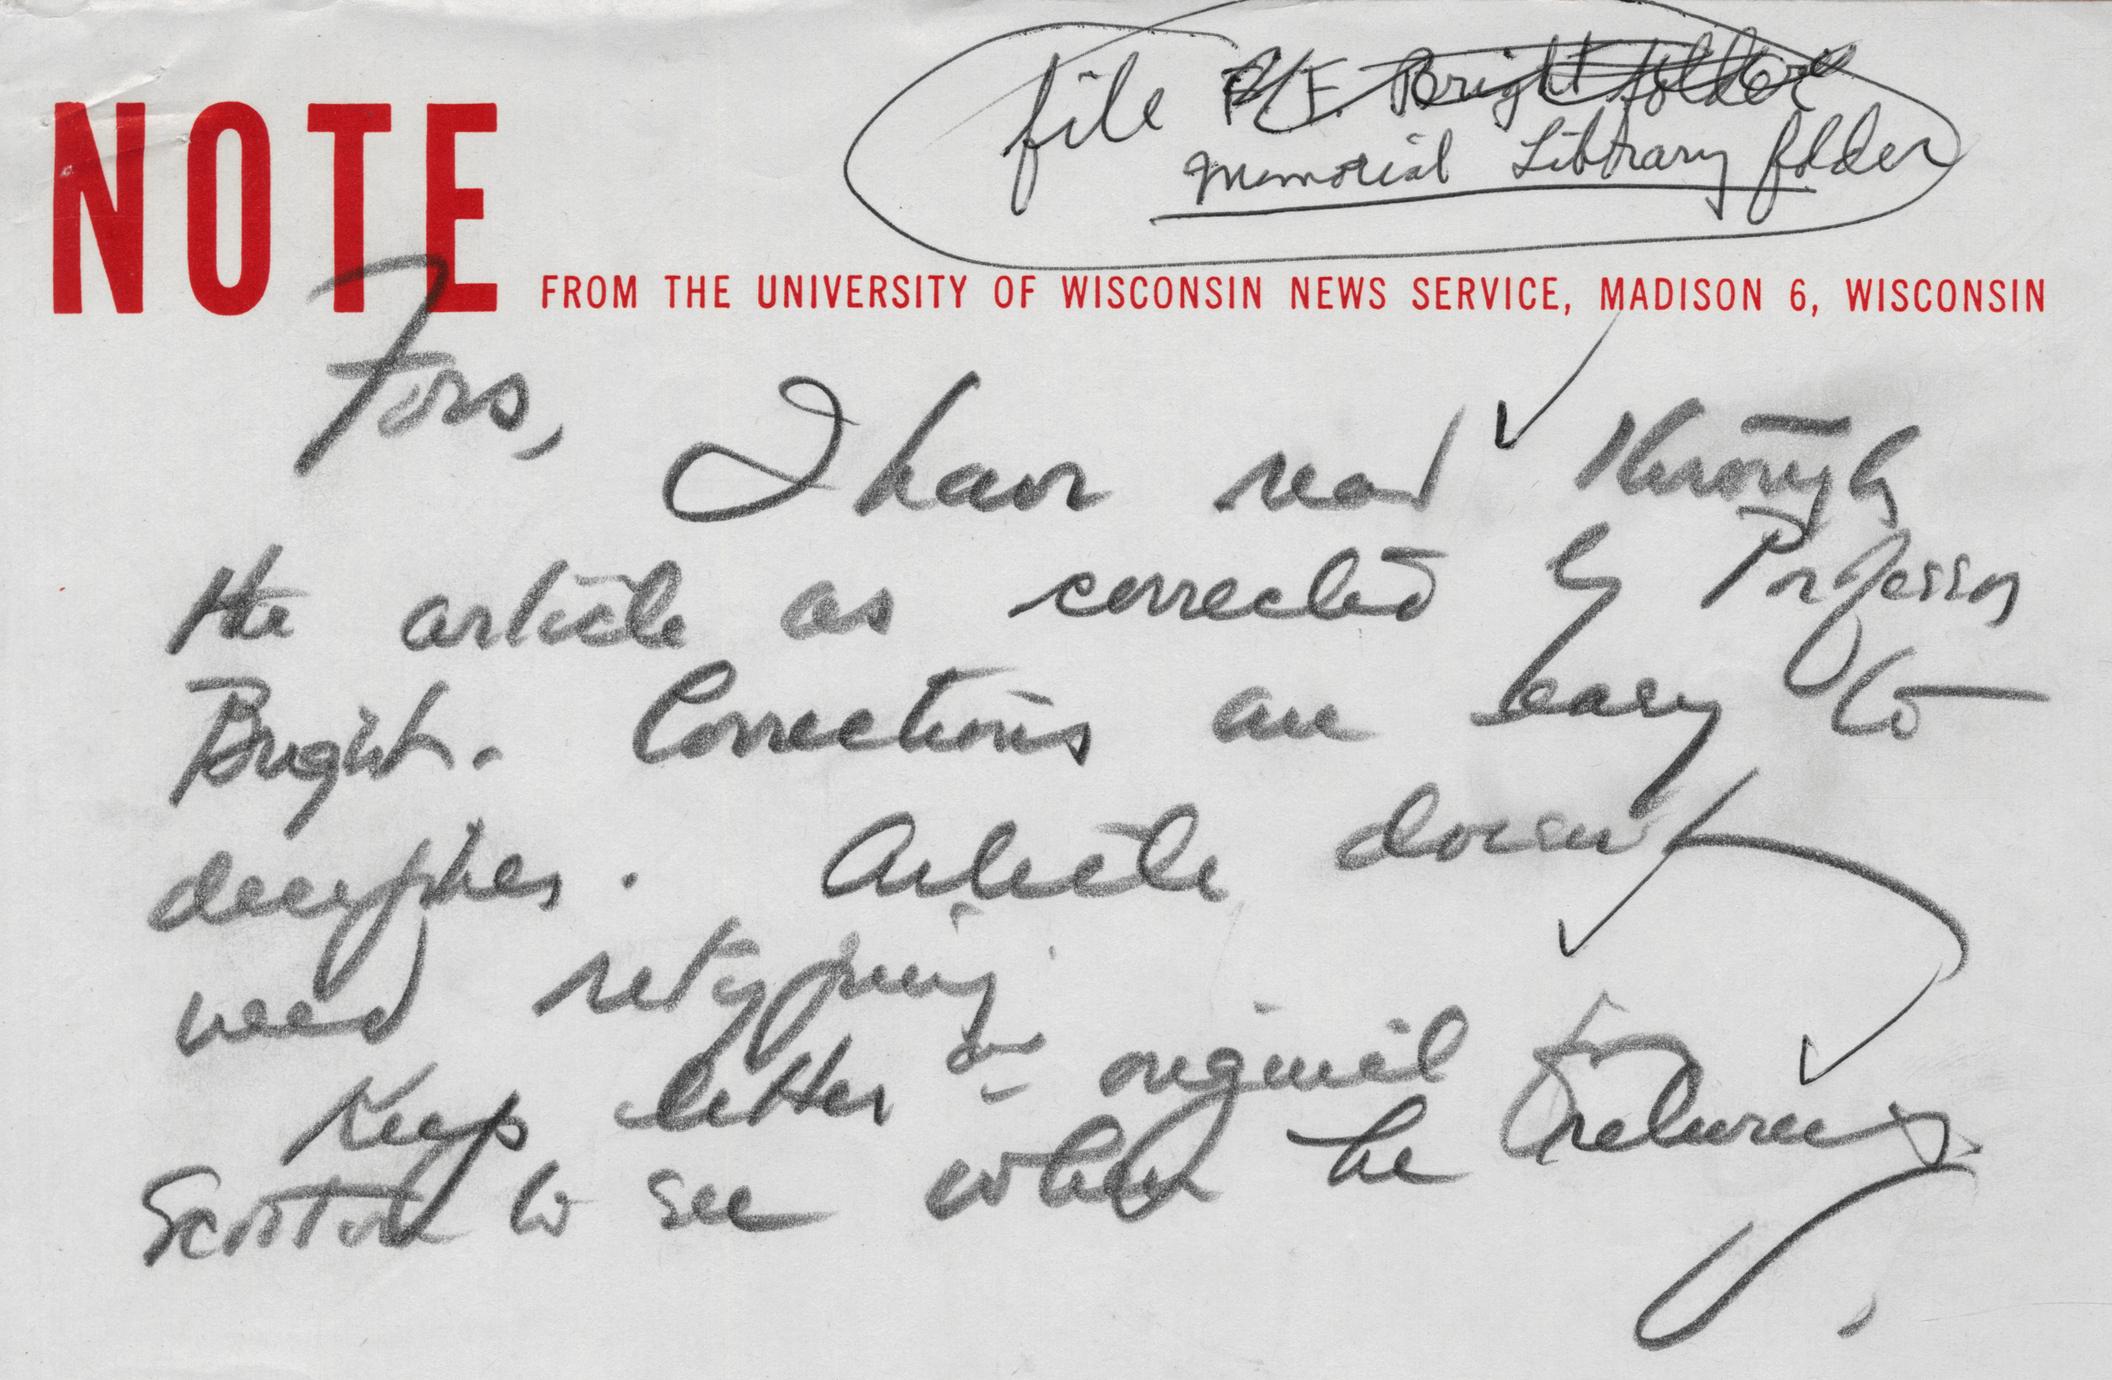 file R/F. Bright folder
Memorial Library folder
NOTE
FROM THE UNIVERSITY OF WISCONSIN NEWS SERVICE, MADISON 6, WISCONSIN
I have read through
the article as corrected by Professor
Bright. Corrections are easy to
decypher. Article doesn't
need retyping
Keep letter on original for
to see when he returns.